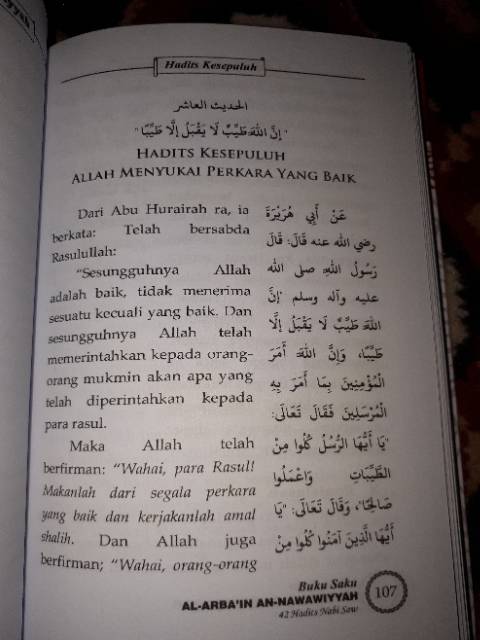 Hadits Kesepuluh
الحديث العاشر
"إِنَّ اللهَ طَيِّبٌ لَا يَقْبَلُ إِلَّا طَيِّبًا"
HADITS KESEPULUH
ALLAH MENYUKAI PERKARA YANG BAIK
Dari Abu Hurairah ra, ia
berkata: Telah bersabda
Rasulullah:
"Sesungguhnya Allah
adalah baik, tidak menerima
sesuatu kecuali yang baik. Dan
sesungguhnya Allah telah
memerintahkan kepada orang-
orang mukmin akan apa yang
telah diperintahkan kepada
para rasul.
Maka Allah telah
berfirman: "Wahai, para Rasul!
Makanlah dari segala perkara
yang baik dan kerjakanlah amal
shalih. Dan Allah juga
berfirman; "Wahai, orang-orang
عَنْ أَبِي هُرَيْرَةَ
رضي الله عنه قَالَ: قَالَ
رَسُولُ اللهِ صلى الله
عليه وآله وسلم "إِنَّ
اللهَ طَيِّبٌ لَا يَقْبَلُ إِلَّا
طَيِّبًا، وَإِنَّ اللهَ أَمَرَ
الْمُؤْمِنِينَ بِمَا أَمَرَ بِهِ
الْمُرْسَلِينَ فَقَالَ تَعَالَى:
"يَا أَيُّهَا الرُّسُلُ كُلُوا مِنْ
الطَّيِّبَاتِ وَاعْمَلُوا
صَالِحًا"، وَقَالَ تَعَالَى: "يَا
أَيُّهَا الَّذِينَ آمَنُوا كُلُوا مِنْ
Buku Saku
AL-ARBA'IN AN-NAWAWIYYAH
42 Hadits Nabi Saw
107